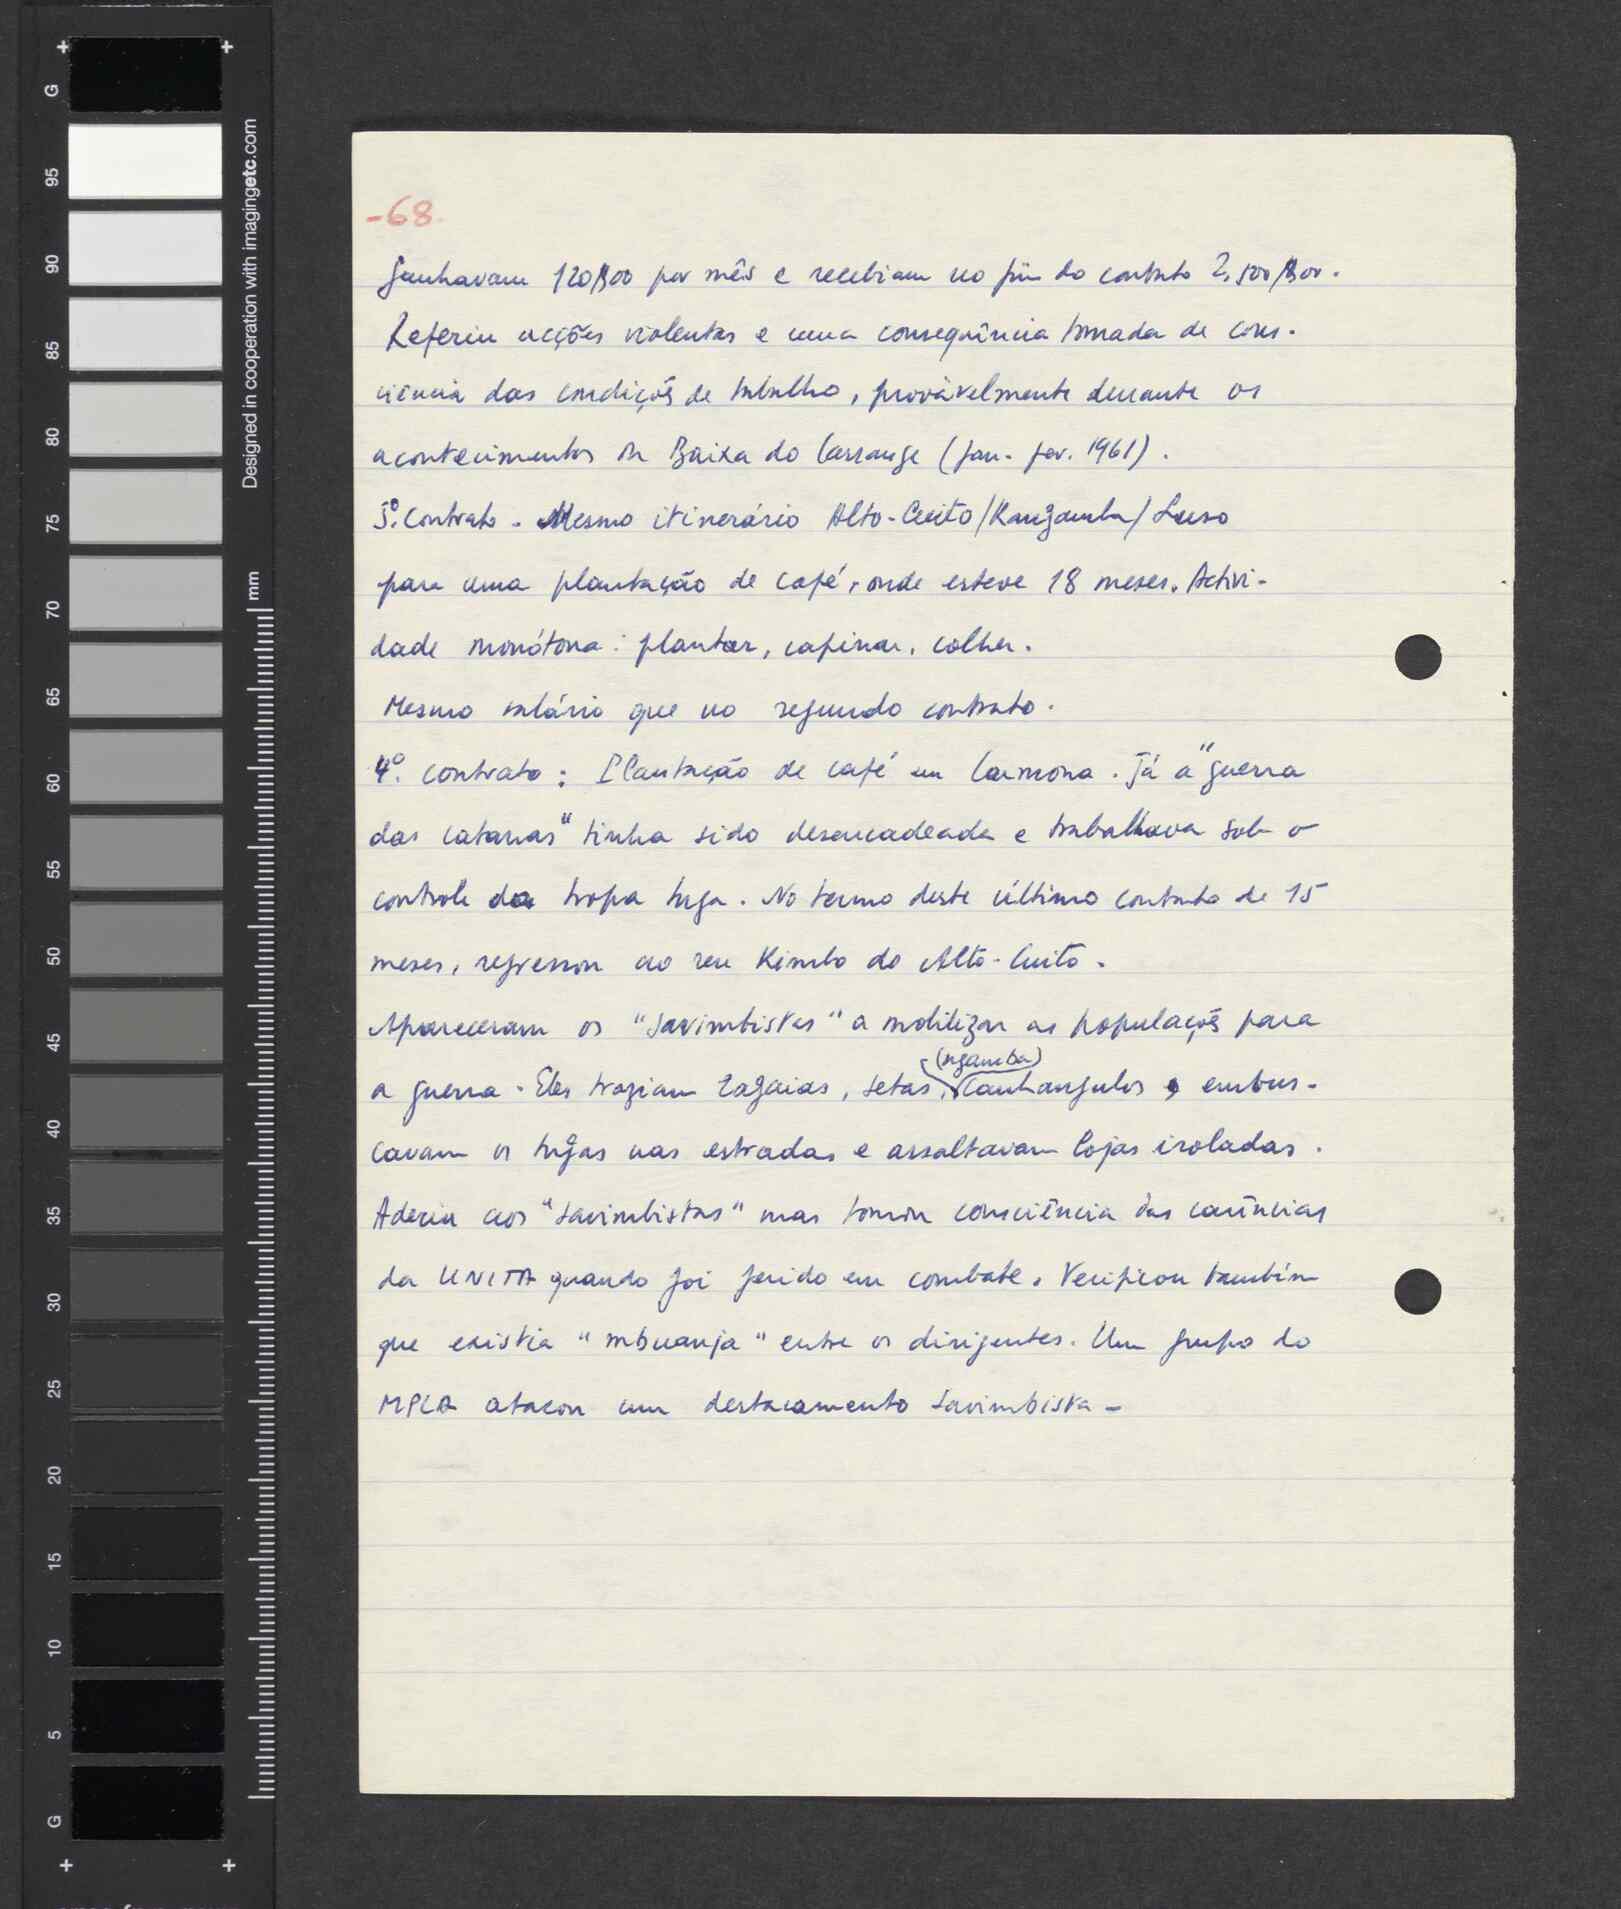 -68
Ganhavam 120$00 por mês e recebiam no fim do contrato 2.500$00.
Referiu acções violentas e uma consequência tomada de cons-
ciência das condições de trabalho, provàvelmente durante os
acontecimentos da Baixa do Cassange (Jan. fev. 1961).
3º. Contrato. Mesmo itinerário Alto-Cuito/Kangamba/Luso
para uma plantação de café, onde esteve 18 meses. Activi-
dade monótona: plantar, capinar, colher.
Mesmo salário que no segundo contrato.
4º. contrato: Plantação de café em Carmona. Já a "guerra
das catanas" tinha sido desencadeada e trabalhava sob o
controle da tropa tuga. No termo deste último contrato de 15
meses, regressou ao seu Kimbo do Alto-Cuito.
Apareceram os "savimbistas" a mobilizar as populações para
(ngamba)
a guerra. Eles traziam zagaias, setas, canhangulos, embos-
cavam os tugas nas estradas e assaltavam lojas isoladas.
Aderiu aos "savimbistas" mas tomou consciência das carências
da UNITA quando foi ferido em combate. Verificou também
que existia "mbuanja" entre os dirigentes. Um grupo do
MPLA atacou um destacamento savimbista -
G
95
90
85
80
75
70
65
60
55
50
45
40
35
30
25
20
15
10
5
G
mm
Designed in cooperation with imagingetc.com